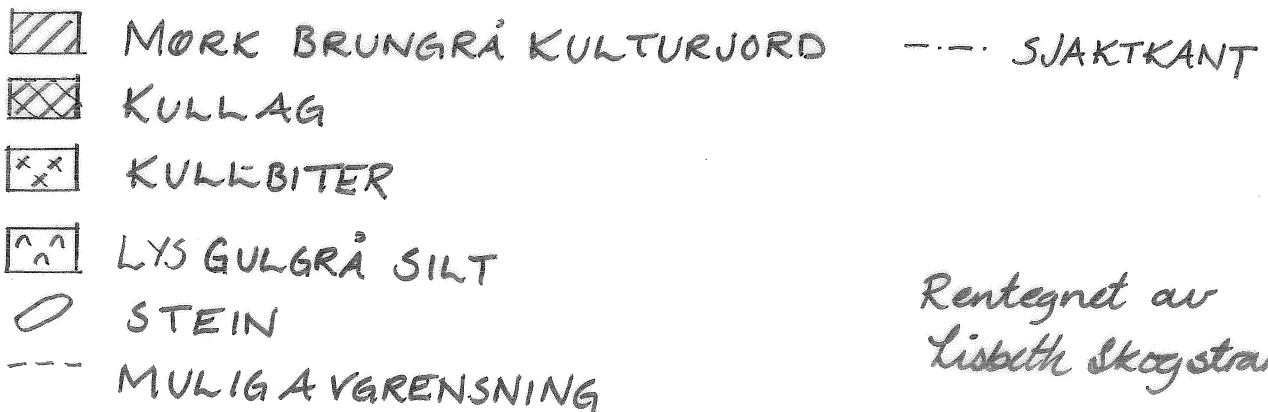 MØRK BRUNGRÅ KULTURJORD
KULLAG
KULLBITER
LYS GULGRÅ SILT
STEIN
MULIG AVGRENSNING
SJAKTKANT
Rentegnet av
Lisbeth